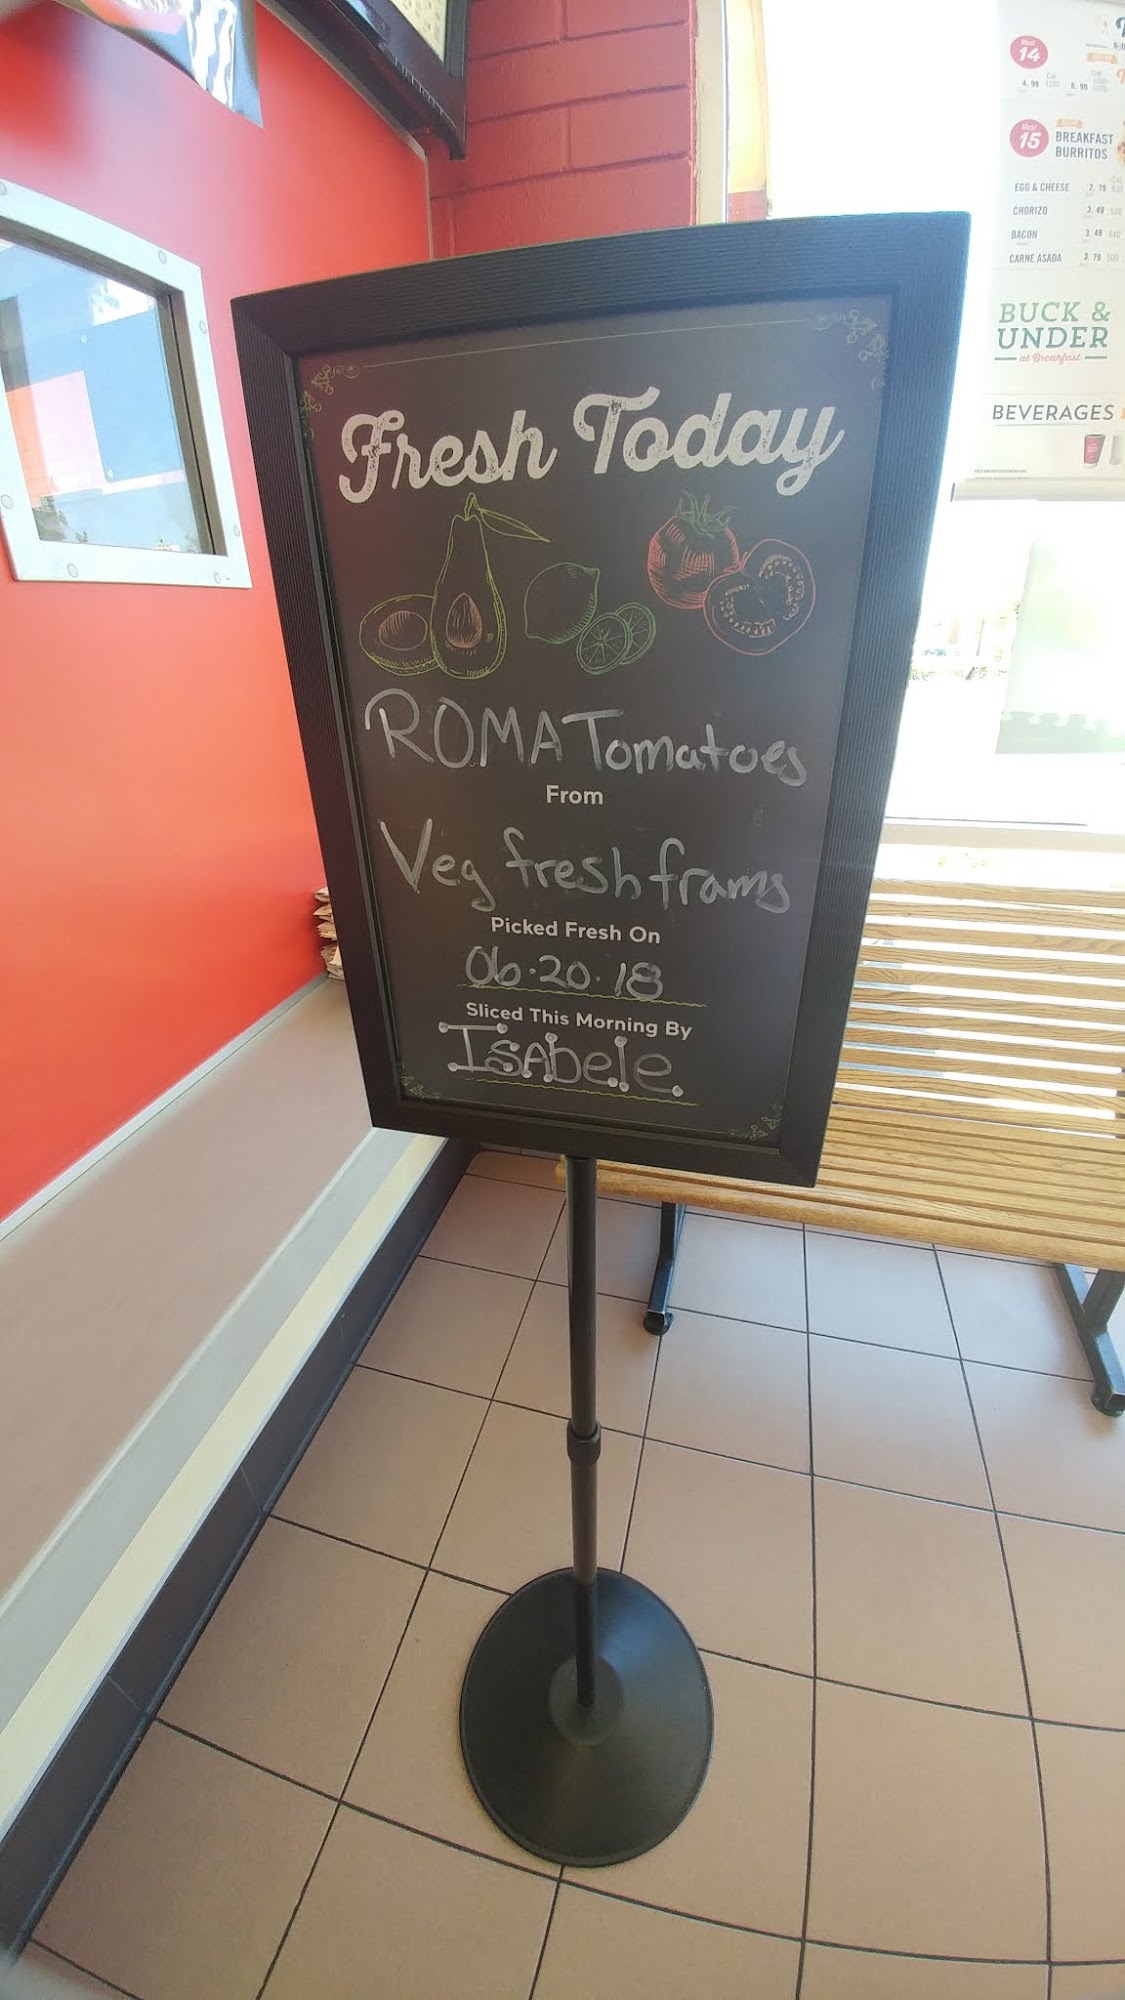 Fresh Today
ROMA Tomatoes
From
Veg fresh frams
Picked Fresh On
06·20·18
Sliced This Morning By
ISAbele
Meal
14
4.99
6.99
Meal
15
BREAKFAST
BURRITOS
EGG & CHEESE 2.79
CHORIZO 3.49 520
BACON 3.49
CARNE ASADA 3.79 500
BUCK &
UNDER
at Breakfast
BEVERAGES